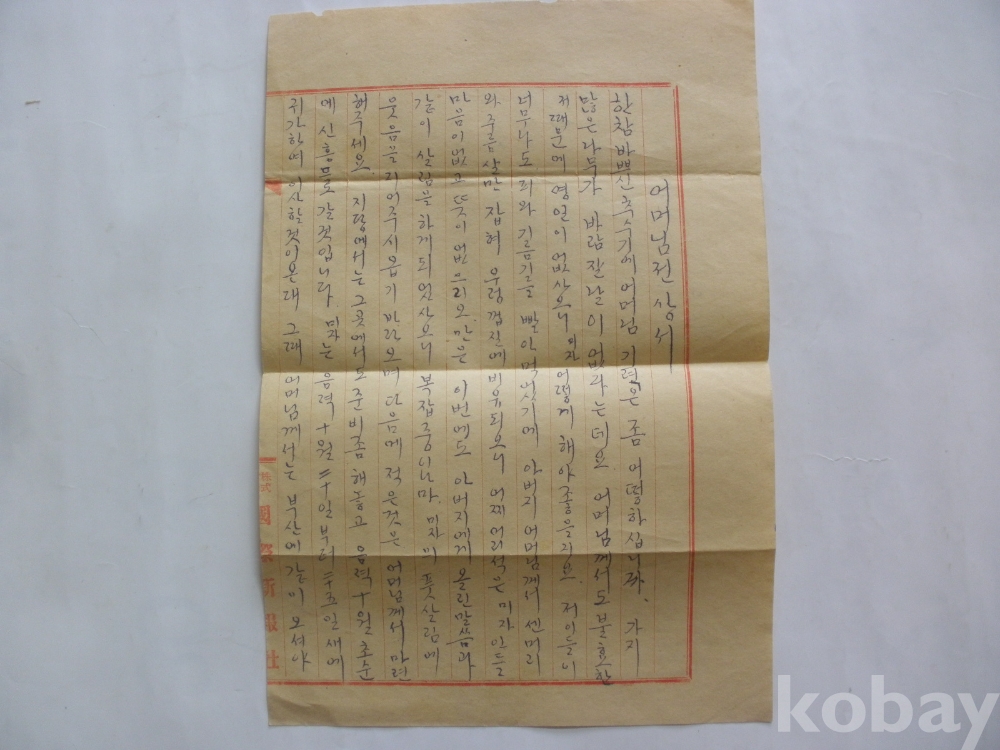 어머님전 상서
한참 바쁘신 추수기에 어머님 기력은 좀 어떻하십니까. 가지
많은 나무가 바람 잘 날이 없다는데요 어머님께서도 불효한
저 때문에 영일이 없사오니 미자 어떻게 해야 좋을지요. 저이들이
너무나도 피와 기름기를 빨아먹었기에 아버지 어머님께서 센머리
와 주름살만 잡혀 우렁껍질에 비유되오니 어찌 어리석은 미자인들
마음이 없고 뜻이 없으리오만은 이번에도 아버지에게 올린 말씀과
같이 살림을 하게 되었사오니 복잡중 님마. 미자의 풋살림에
웃음을 리어주시옵기 바라오며 다음에 적은것은 어머님께서 마련
해주세요. 지당에서는 그곳에서도 준비좀 해놓고 음력 十월 초순
에 신흥 로 갈것입니다. 미자는 음력 十월 二十일부터 二十五일 새에
귀가하여 이사할것이온대 그때 어머님께서는 부산에 같이 오셔야
國際新報社
kobay